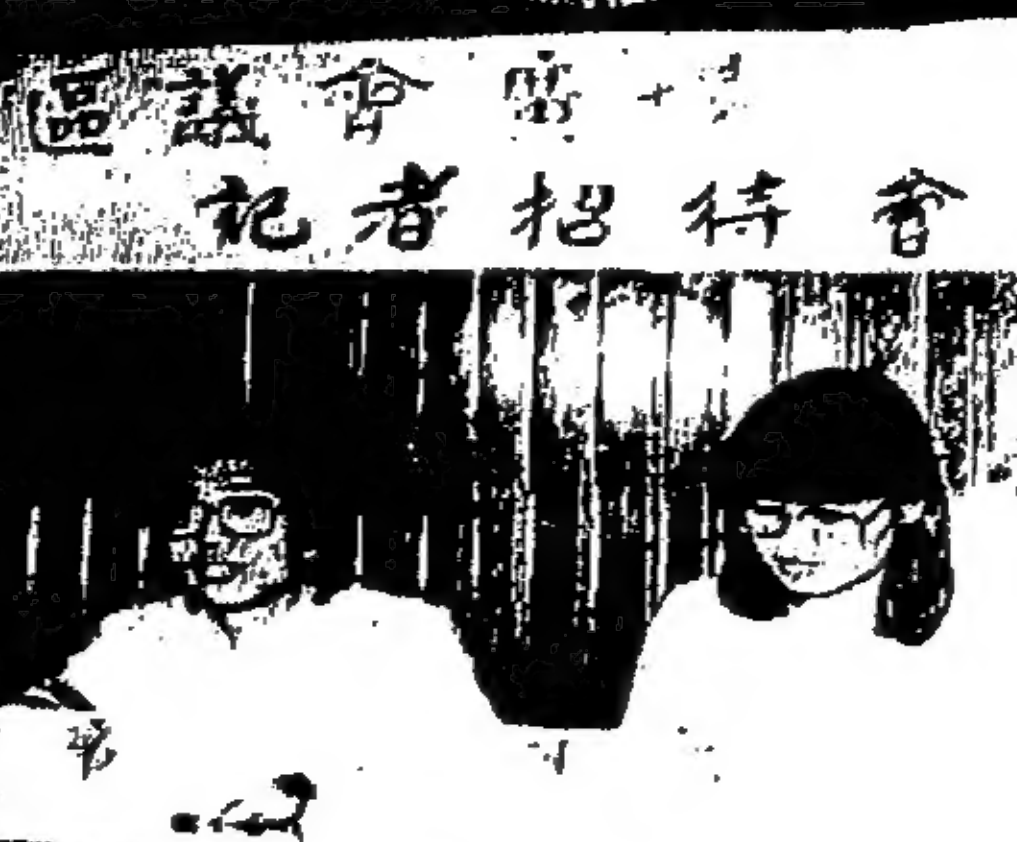 區議會
記者招待會